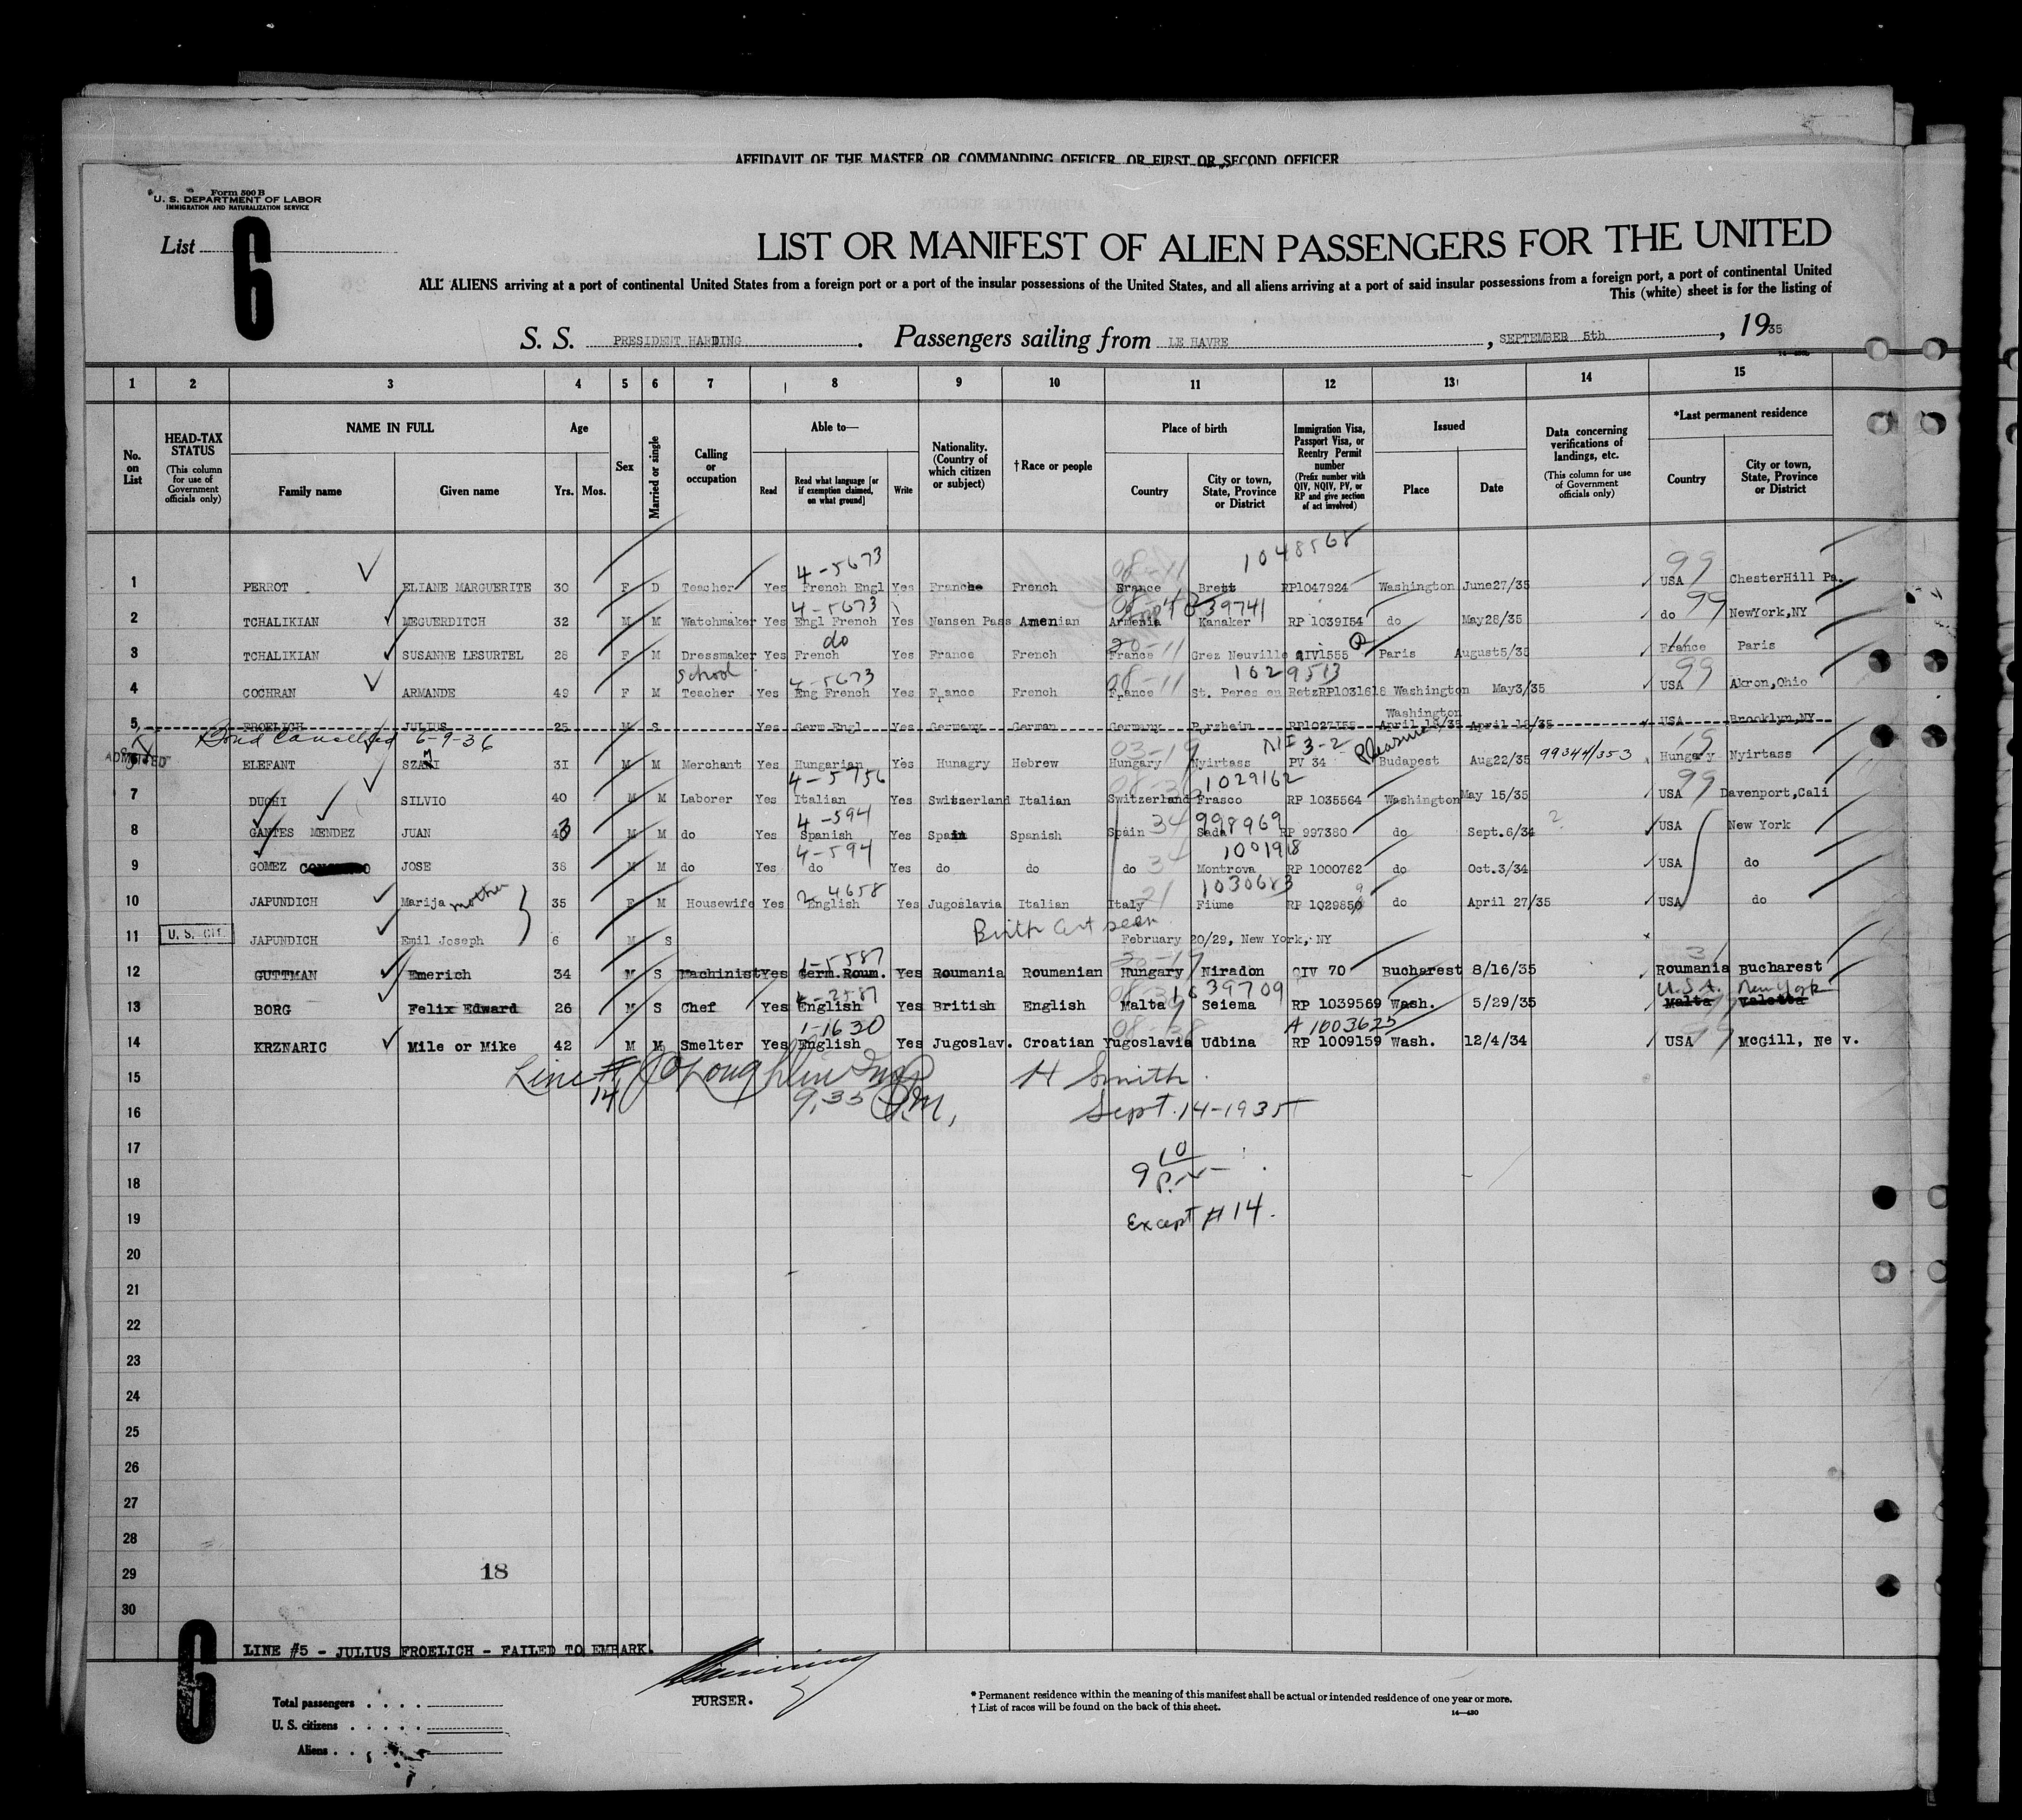 AFFIDAVIT OF THE MASTER OR COMMANDING OFFICER OR FIRST OR SECOND OFFICER
Form 500 B
U. S. DEPARTMENT OF LABOR
IMMIGRATION AND NATURALIZATION SERVICE
List 6
LIST OR MANIFEST OF ALIEN PASSENGERS FOR THE UNITED
ALL ALIENS arriving at a port of continental United States from a foreign port or a port of the insular possessions of the United States, and all aliens arriving at a port of said insular possessions from a foreign port, a port of continental United
This (white) sheet is for the listing of
S. S. PRESIDENT HARDING. Passengers sailing from LE HAVRE, SEPTEMBER 5th, 1935
1 2 3 4 5 6 7 8 9 10 11 12 13 14 15
No. on List
HEAD-TAX STATUS (This column for use of Government officials only)
NAME IN FULL Family name Given name
Age Yrs. Mos.
Sex
Married or single
Calling or occupation
Able to— Read Read what language [or if exemption claimed, on what ground] Write
Nationality. (Country of which citizen or subject)
†Race or people
Place of birth Country City or town, State, Province or District
Immigration Visa, Passport Visa, or Reentry Permit number (Prefix number with QIV, NQIV, PV, or RP and give section of act involved)
Issued Place Date
Data concerning verifications of landings, etc. (This column for use of Government officials only)
*Last permanent residence Country City or town, State, Province or District
4-5673 08-11 1048568 99
1 PERROT ELIANE MARGUERITE 30 F D Teacher Yes French Engl Yes Franche French France Brett RP1047924 Washington June27/35 USA ChesterHill Pa.
4-5673 039741 99
2 TCHALIKIAN MEGUERDITCH 32 M M Watchmaker Yes Engl French Yes Nansen Pass Amenian Armenia Kanaker RP 1039154 do May28/35 do NewYork,NY
do 20-11
3 TCHALIKIAN SUSANNE LESURTEL 28 F M Dressmaker Yes French Yes France French France Grez Neuville QIV1555 Paris August5/35 France Paris
School 4-5673 08-11 1629513 99
4 COCHRAN ARMANDE 49 F M Teacher Yes Eng French Yes France French France St. Peres en Retz RP1031618 Washington May3/35 USA Akron,Ohio
Washington
5 FROELICH JULIUS 25 M S Yes Germ Engl Yes Germany German Germany Porzheim RP1027155 April 18/35 April 18/35 USA Brooklyn,NY
Bond Cancelled 6-9-36 03-19 3-2 Pleasure 19
ADMITTED
6 ELEFANT SZANI 31 M M Merchant Yes Hungarian Yes Hunagry Hebrew Hungary Nyirtass PV 34 Budapest Aug22/35 99344/353 Hungary Nyirtass
4-5756 1029162 99
7 DUCHI SILVIO 40 M M Laborer Yes Italian Yes Switzerland Italian Switzerland Frasco RP 1035564 Washington May 15/35 USA Davenport,Cali
4-594 34 998969 ?
8 GANTES MENDEZ JUAN 43 M M do Yes Spanish Yes Spain Spanish Spain Sada RP 997380 do Sept.6/34 USA New York
4-594 34 1001918
9 GOMEZ JOSE 38 M M do Yes do Yes do do do Montrova RP 1000762 do Oct.3/34 USA do
2 4658 21 1030683
10 JAPUNDICH Marija mother 35 F M Housewife Yes English Yes Jugoslavia Italian Italy Fiume RP 1029850 do April 27/35 USA do
Birth Cert seen
11 U. S. CIT. JAPUNDICH Emil Joseph 6 M S February 20/29, New York, NY
1-5587 31
12 GUTTMAN Emerich 34 M S Machinist Yes Germ.Roum. Yes Roumania Roumanian Hungary Niradon QIV 70 Bucharest 8/16/35 Roumania Bucharest
4-2587 1639709 U.S.A. New York
13 BORG Felix Edward 26 M S Chef Yes English Yes British English Malta Seiema RP 1039569 Wash. 5/29/35 Malta Valetta
1-1630 08-38 A 1603625 99
14 KRZNARIC Mile or Mike 42 M M Smelter Yes English Yes Jugoslav. Croatian Yugoslavia Udbina RP 1009159 Wash. 12/4/34 USA McGill, Nev.
15 Line # 14 J O'Loughlin Insp H Smith
16 9.35 P.M. Sept. 14-1935
17 9 10
18 P.M.
19 Except #14.
20
21
22
23
24
25
26
27
28
29 18
30
6
LINE #5 - JULIUS FROELICH - FAILED TO EMBARK.
PURSER.
Total passengers
U. S. citizens
Aliens
* Permanent residence within the meaning of this manifest shall be actual or intended residence of one year or more.
† List of races will be found on the back of this sheet.
14—430